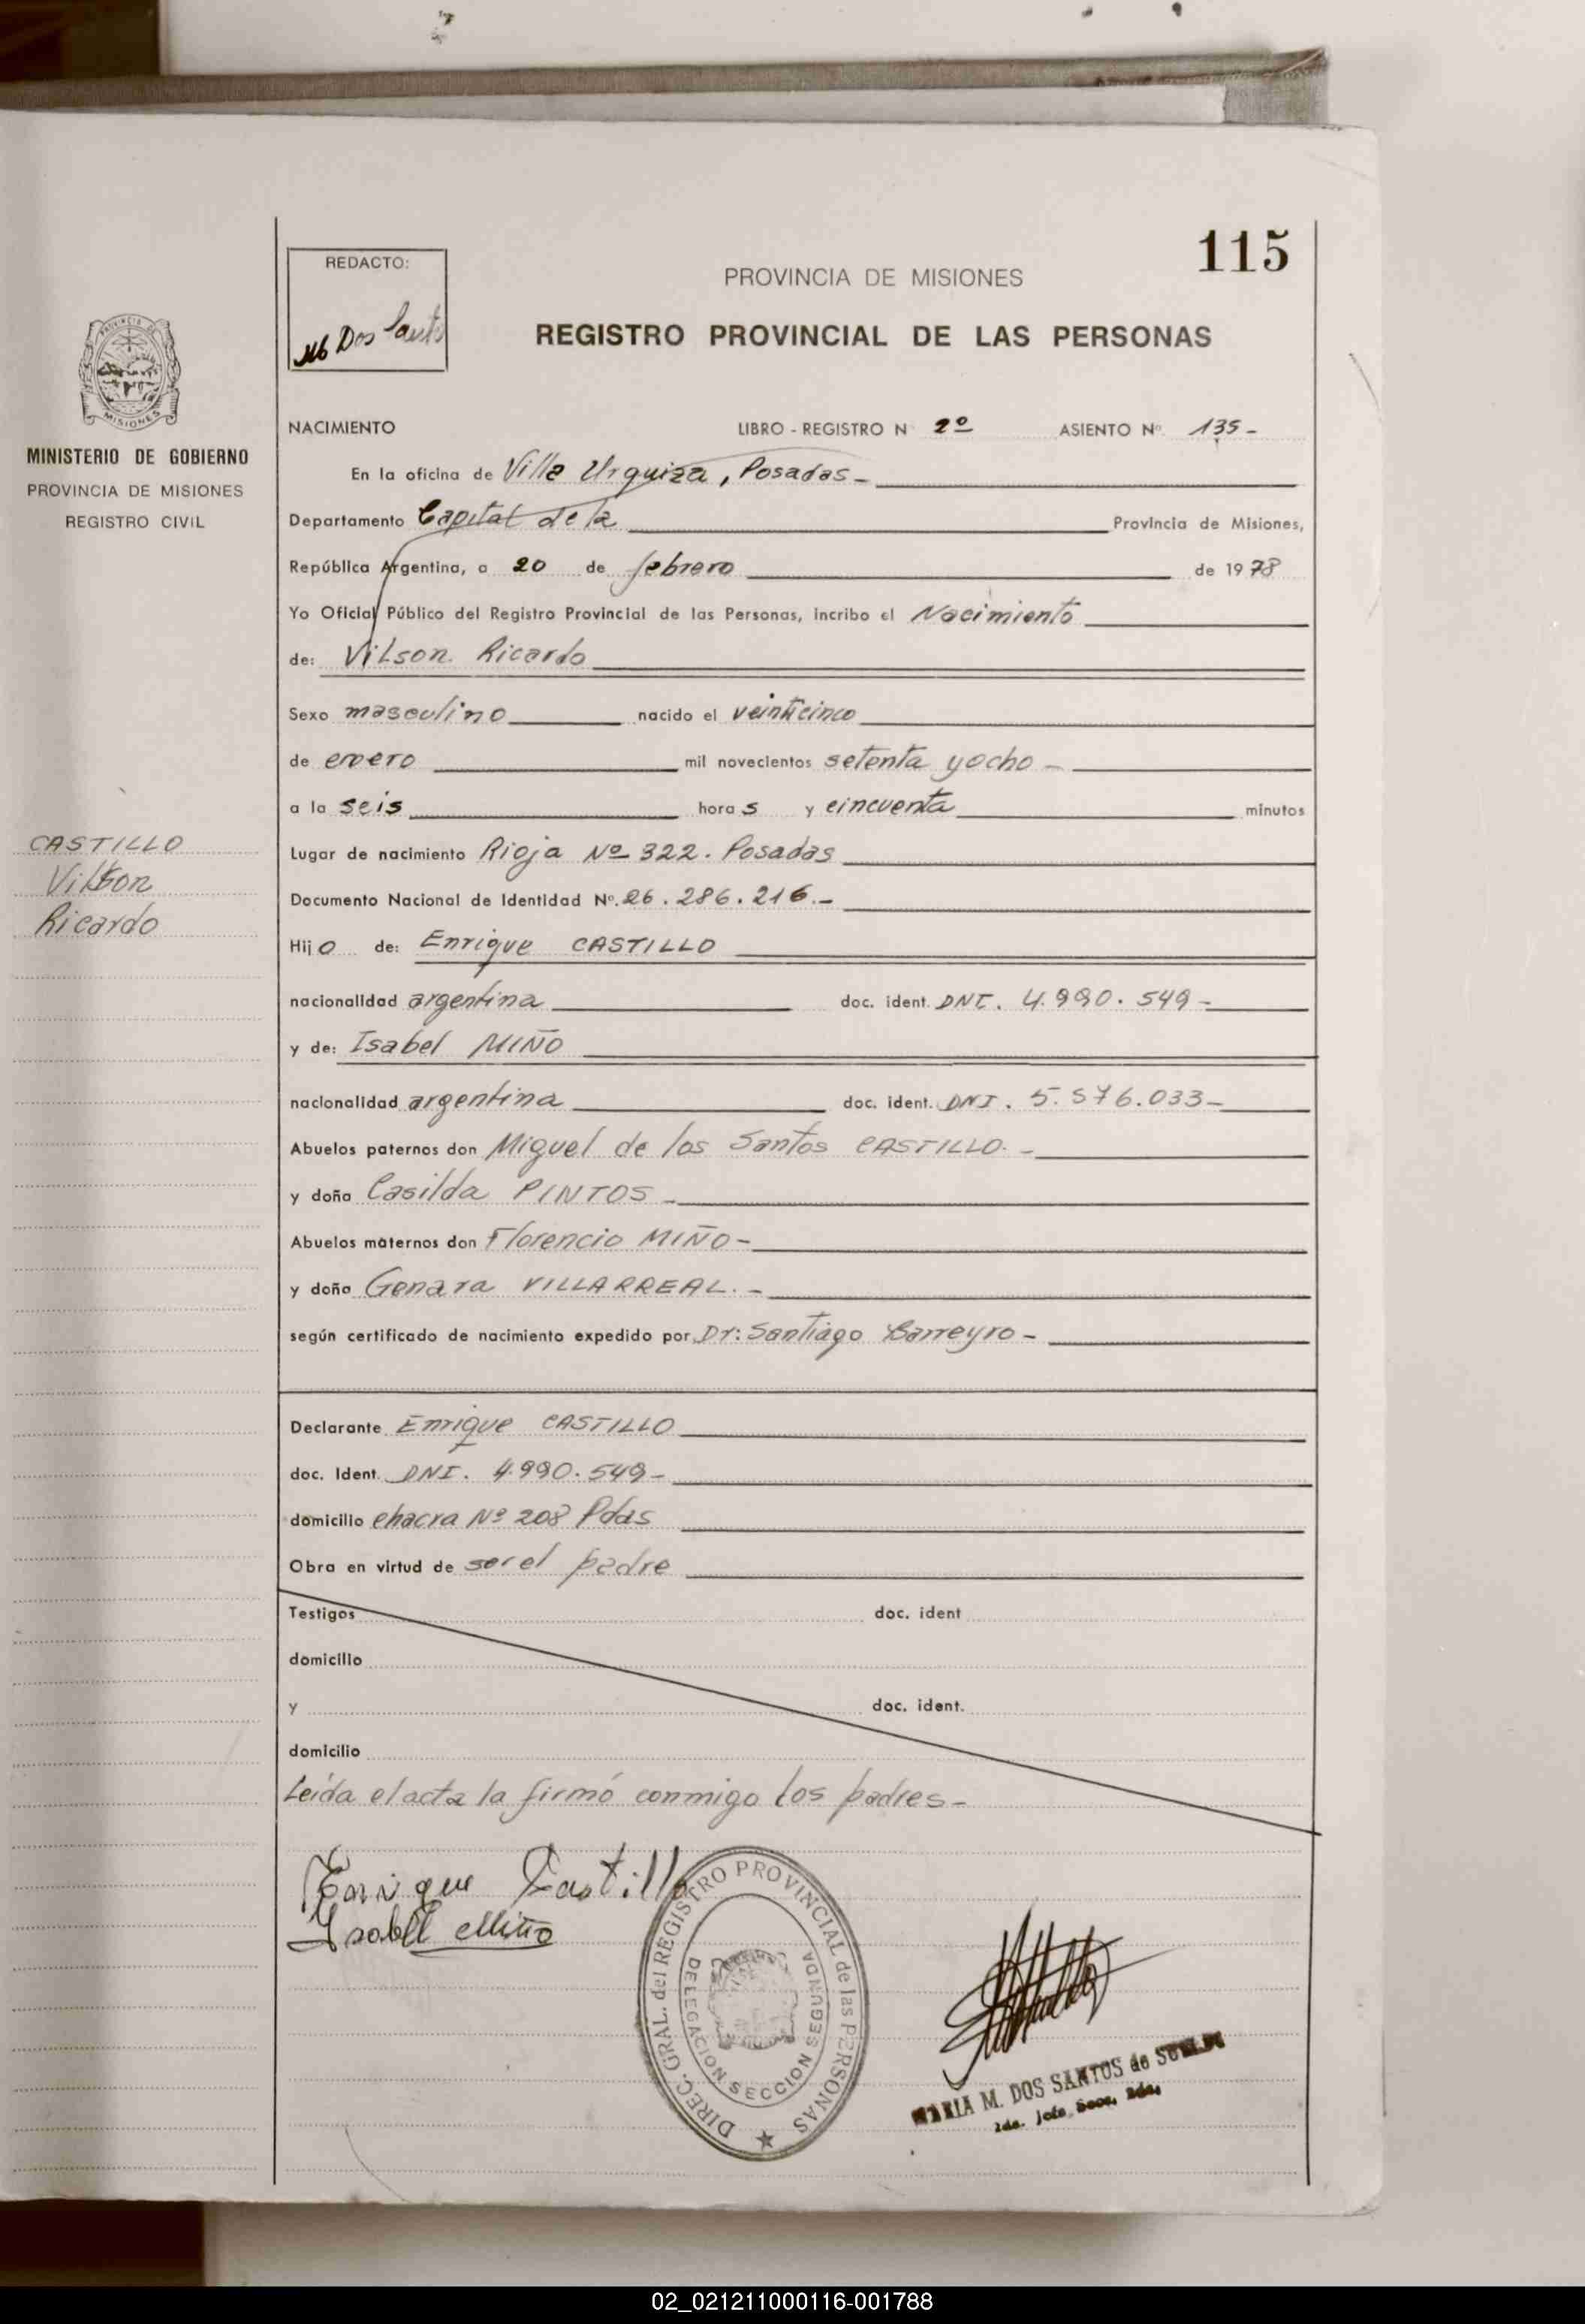 115
REDACTO:
Mb Dos Santos
PROVINCIA DE MISIONES
REGISTRO PROVINCIAL DE LAS PERSONAS
MISIONES
MINISTERIO DE GOBIERNO
PROVINCIA DE MISIONES
REGISTRO CIVIL
CASTILLO
Vilson
Ricardo
NACIMIENTO LIBRO - REGISTRO N 2º ASIENTO Nº 135-
En la oficina de Villa Urquiza, Posadas-
Departamento Capital de la Provincia de Misiones,
República Argentina, a 20 de febrero de 1978
Yo Oficial Público del Registro Provincial de las Personas, incribo el Nacimiento
de: Vilson Ricardo
Sexo masculino nacido el veinticinco
de enero mil novecientos setenta y ocho -
a la seis horas y cincuenta minutos
Lugar de nacimiento Rioja Nº 322. Posadas
Documento Nacional de Identidad Nº. 26.286.216.-
Hijo de: Enrique CASTILLO
nacionalidad argentina doc. ident. DNI. 4.990.549-
y de: Isabel MIÑO
nacionalidad argentina doc. ident. DNI. 5.576.033-
Abuelos paternos don Miguel de los Santos CASTILLO.-
y doña Casilda PINTOS-
Abuelos maternos don Florencio MIÑO-
y doña Genara VILLARREAL.-
según certificado de nacimiento expedido por Dr: Santiago Barreyro-
Declarante Enrique CASTILLO
doc. Ident. DNI. 4.990.549-
domicilio chacra Nº 208 Pdas
Obra en virtud de ser el padre
Testigos doc. ident
domicilio
y doc. ident.
domicilio
Leída el acta la firmó conmigo los padres-
Enrique Castillo
Isabel Miño
DIREC. GRAL. del REGISTRO PROVINCIAL de las PERSONAS
DELEGACION SECCION SEGUNDA
MARIA M. DOS SANTOS de
2da. Jefe Secc. 2da.
02_021211000116-001788